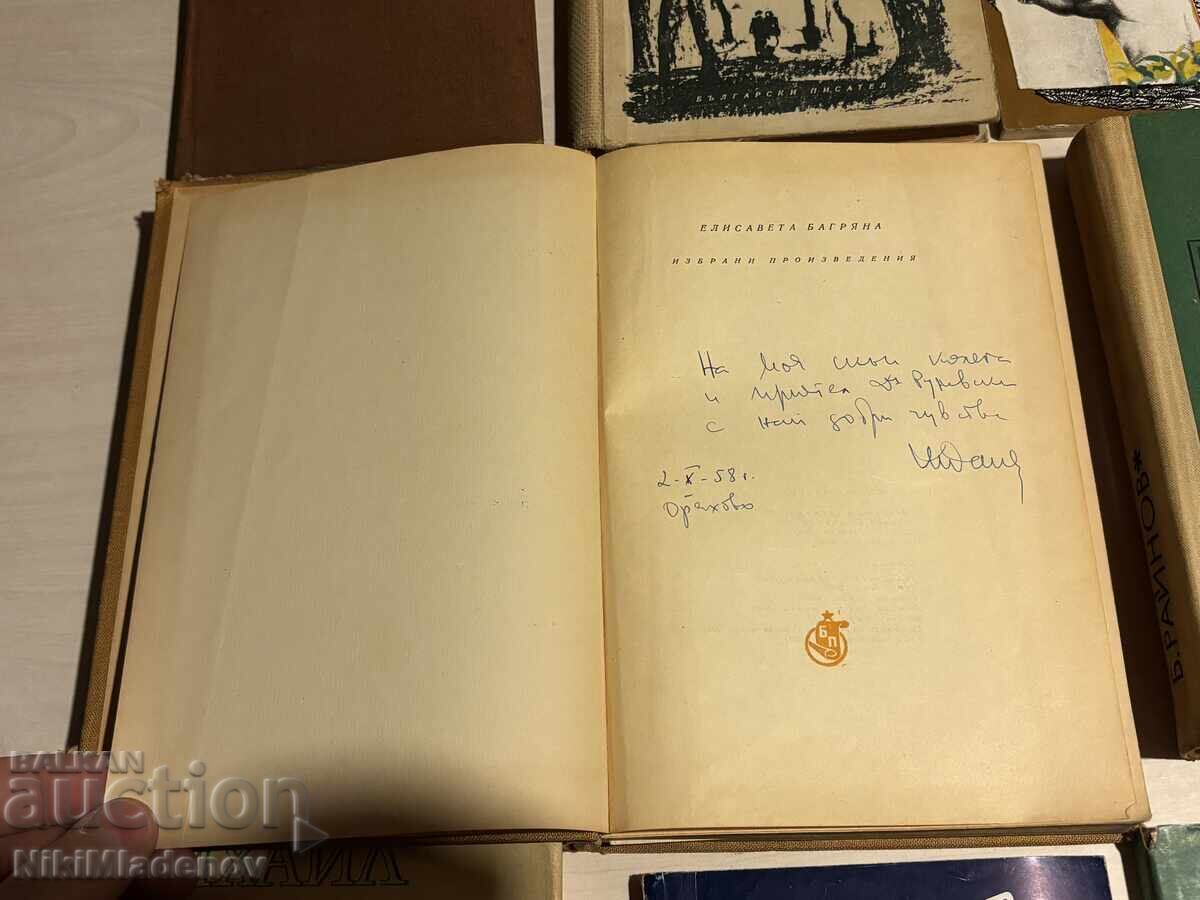 БЪЛГАРСКИ ПИСАТЕЛ
ЕЛИСАВЕТА БАГРЯНА
ИЗБРАНИ ПРОИЗВЕДЕНИЯ
На моя скъп колега
и приятел Д-р
с най добри чувства
2-X-58 г.
Оряхово
БП
Б. РАЙНОВ*
ХАИЛ
BALKAN
auction
NikiMladenov